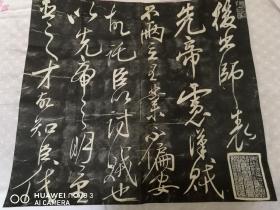 後出師表
先帝慮漢賊
不兩立王業不偏安
故託臣以討賊也
以先帝之明量
臣之才故知臣伐
HUAWEI nova 3
AI CAMERA